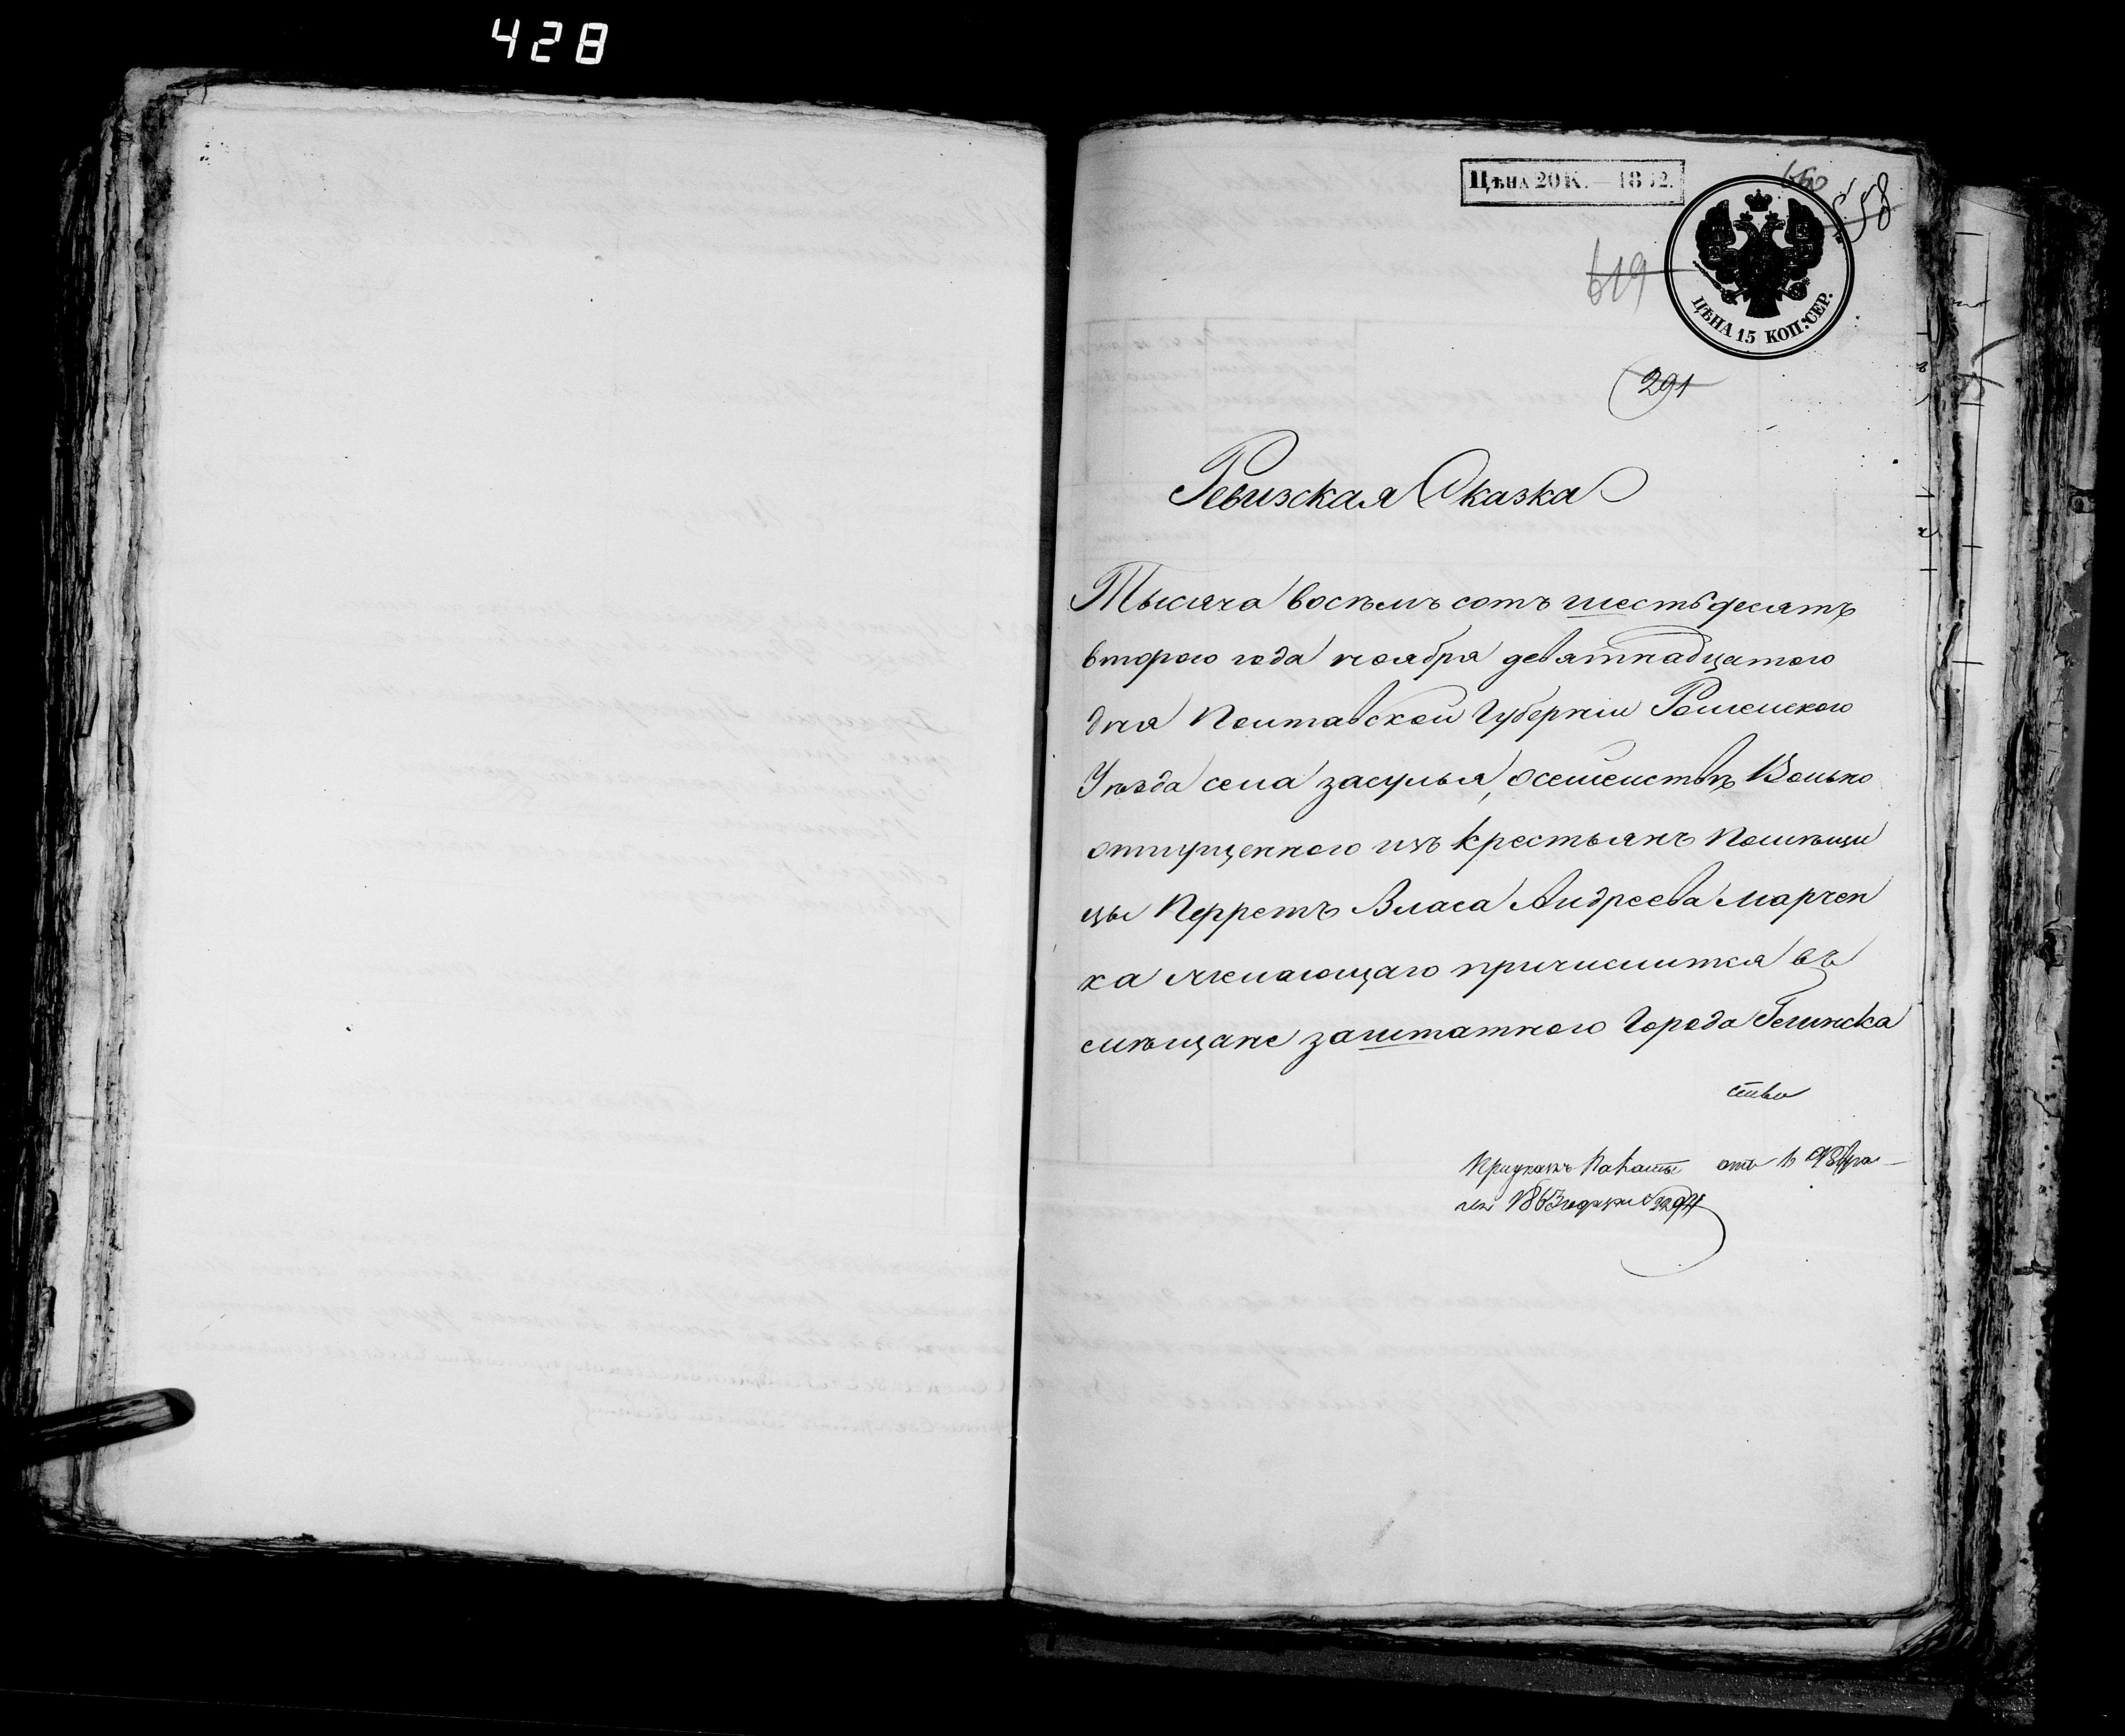 428
Цѣна 20 К. — 18 2.
558
ЦѢНА 15 КОП: СЕР.
619
291
Ревизская Сказка
Тысяча восѣмъ сотъ шестьдесятъ
второго года ноября девятнадцатого
дня Полтавской Губерніи Роменского
Уѣзда села засулья, осемействѣ Вольно
отпущенного изъ крестьянъ Помѣщи
цы Перретъ Власа Андреева Марчен
ка желающаго причислится въ
мѣщане заштатного Города Глинска
При указѣ Палаты отъ
1863 года